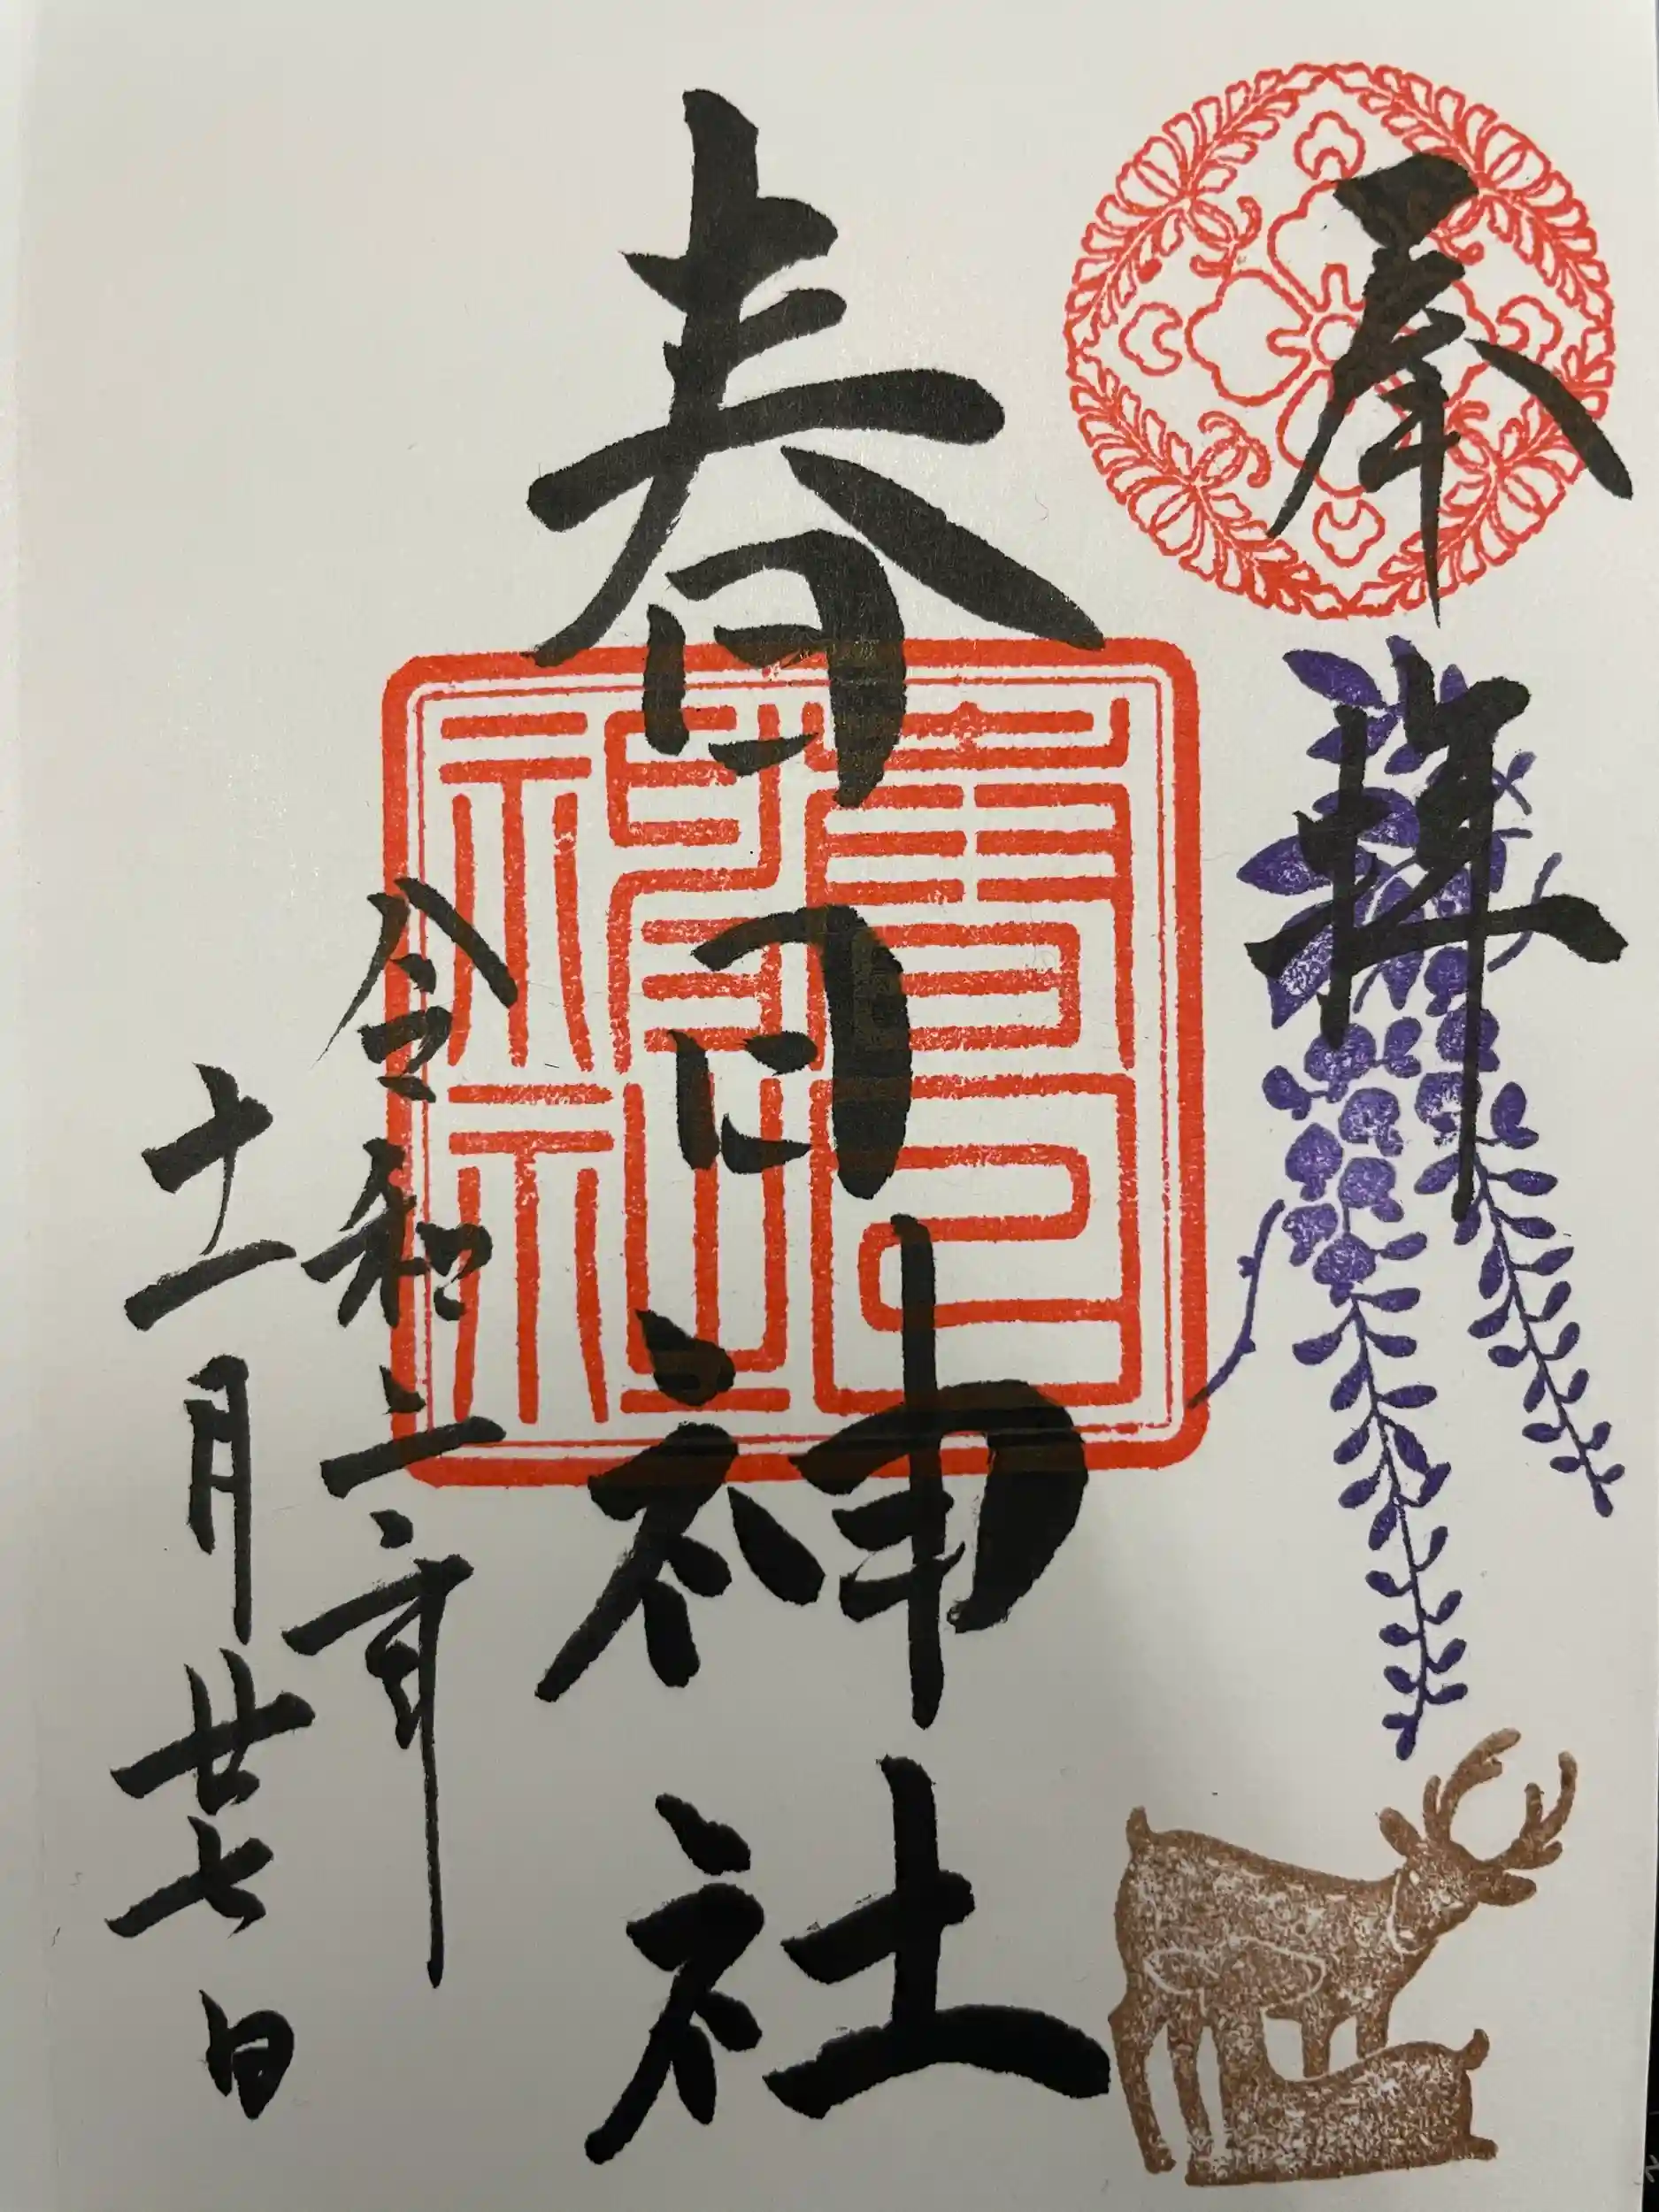 奉拝
春日神社
令和二年
十一月廿七日
春日神社